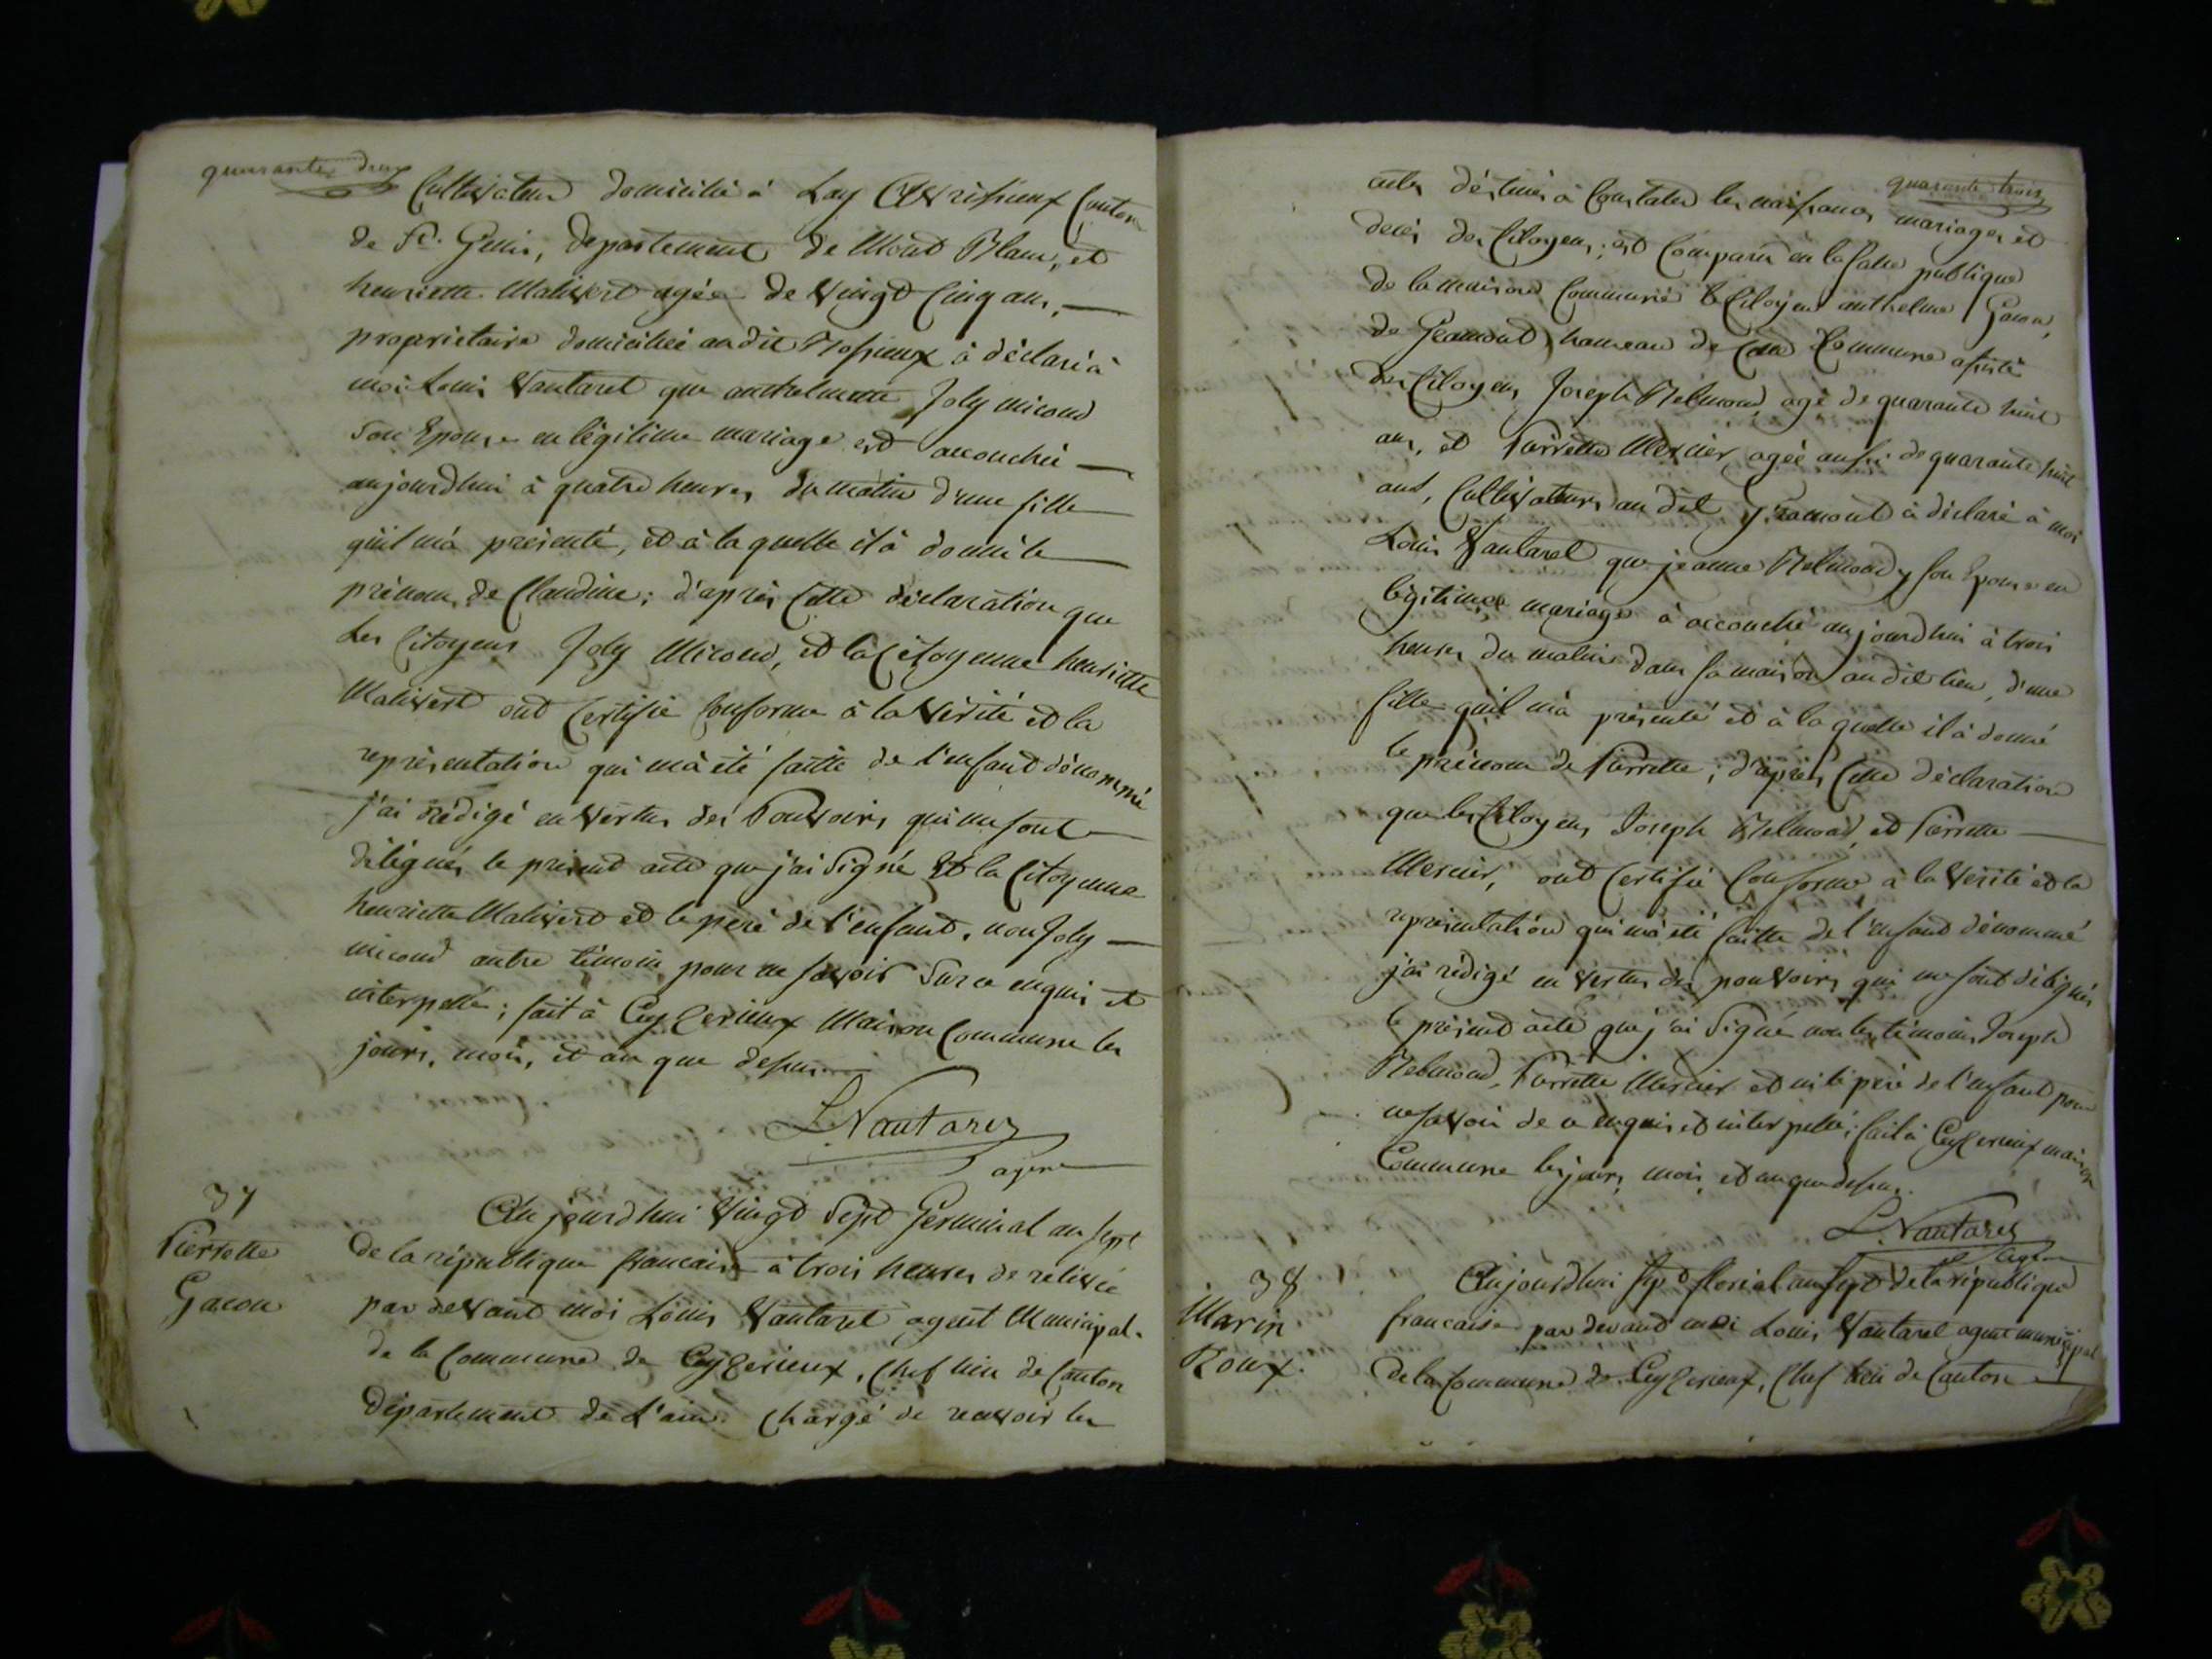 quarante deux
Cultivateur domicilié à Lay Avrissieux Canton
de St. Genis, Departement de Mont Blanc, et
henriette Malivert agée de Vingt Cinq ans,
proprietaire domiciliée audit Rossieux à déclaré à
moi Louis Vantaret que anthelmette Joly micoud
son Epouse en légitime mariage est accouchée
aujourdhui à quatre heures du matin d'une fille
quil m'à présenté, et à la quelle il à donné le
prénom de Claudine; d'après Cette déclaration que
Les Citoyens Joly Micoud, et la Citoyenne henriette
Malivert ont Certifié Conforme à la Vérité et la
représentation qui m'à été faitte de l'enfant dénommé
j'ai rédigé en Vertus des Pouvoirs qui me sont
délégués le présent acte que j'ai Signé Et la Citoyenne
henriette Malivert et le peré de l'enfant, non Joly
micoud autre témoin pour ne savoir Sur ce enquis et
interpellé; fait à Ceyzerieux Maison Commune les
jours, mois, et an que dessus.
L. Vantaret
agent
37
Pierrette
Gacon
Aujourdhui Vingt Sept Germinal an sept
de la république francaise à trois heures de relevée
par devant moi Louis Vantaret agent Municipal
de la Commune de Ceyzerieux, Chef lieu de Canton
Département de L'ain Chargé de recevoir les
quarante trois
actes déstinés à Constater les naissances mariages et
décés des Citoyens; est Comparu en la salle publique
de la maison Commune le Citoyen anthelme Gacon,
de Geamont hameau de Commune assisté
des Citoyens Joseph Belmond, agé de quarante huit
ans, et Pierrette Mercier, agée aussi de quarante huit
ans, Cultivateurs au dit à déclaré à moi
Louis Vantaret que jeanne Belmond son Epouse en
légitime mariage à accouché aujourdhui à trois
heures du matin dans sa maison audit lieu, d'une
fille quil m'à présenté et à la quelle il à donné
le prénom de Pierrette; d'après Cette déclaration
que les Citoyens Joseph Belmond, et Pierrette
Mercier, ont Certifié Conforme à la Vérité et la
représentation qui m'à été faitte de l'enfant dénommé
j'ai rédigé en Vertus des pouvoirs qui me sont délégués
le présent acte que j'ai Signé non les témoins Joseph
Belmond, Pierrette Mercier et ni le peré de l'enfant pour
ne savoir de ce enquis et interpellé; fait à Ceyzerieux maison
Commune les jours, mois, et an que dessus.
L. Vantaret
agent
38
Marin
Roux.
Aujourdhui Sept floréal an sept de la république
francaise par devant moi Louis Vantaret agent municipal
de la Commune de Ceyzerieux, Chef lieu de Canton